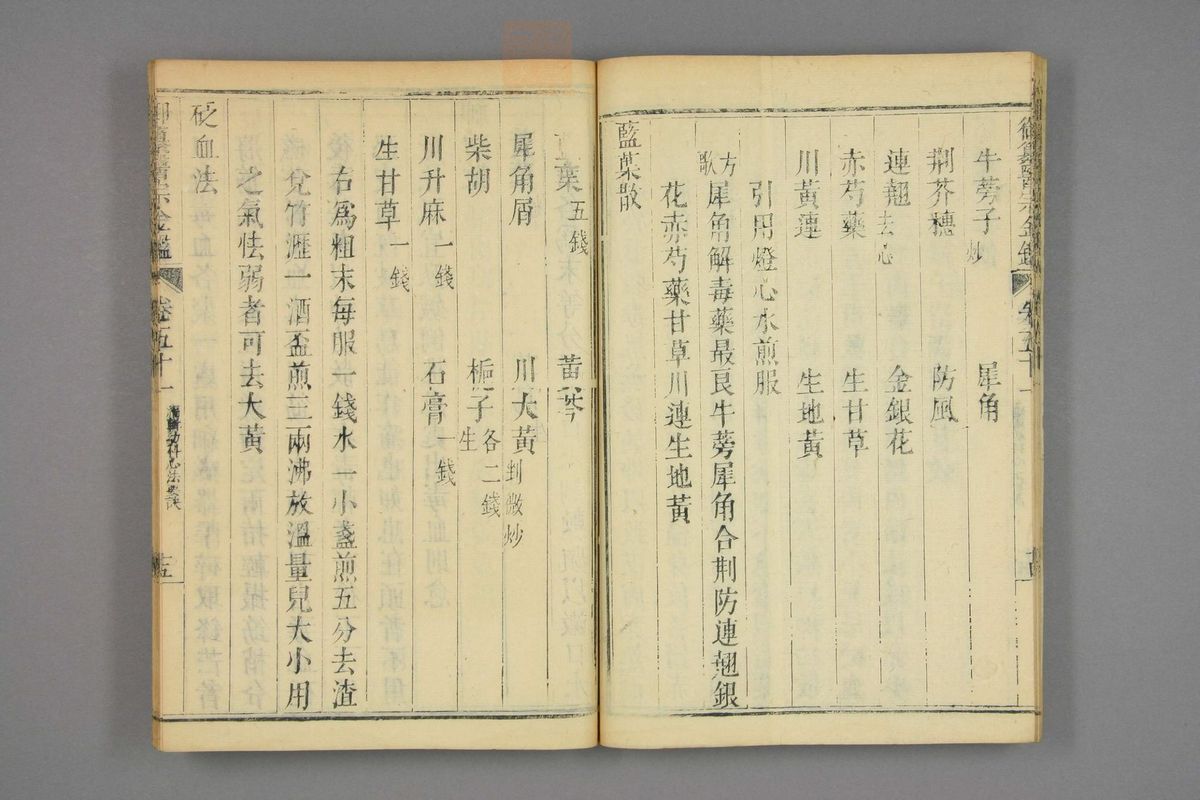 牛蒡子炒 犀角
荆芥穗 防風
連翹去心 金銀花
赤芍藥 生甘草
川黃連 生地黃
引用燈心水煎服
方歌 犀角解毒藥最良牛蒡犀角合荆防連翹銀
花赤芍藥甘草川連生地黃
藍葉散
葉五錢 黃芩
犀角屑 川大黃剉微炒
柴胡 梔子生各二錢
川升麻一錢 石膏一錢
生甘草一錢
右爲粗末每服一錢水一小盞煎五分去渣
兌竹瀝一酒盃煎三兩沸放溫量兒大小用
之氣怯弱者可去大黃
砭血法
御纂醫宗金鑑 卷五十一 幼科心法要訣 十五